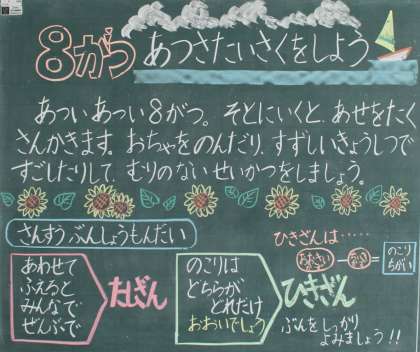 8がつ あつさたいさくをしよう
あついあつい8がつ。そとにいくと、あせをたく
さんかきます。おちゃをのんだり、すずしいきょうしつで
すごしたりして、むりのないせいかつをしましょう。
さんすうぶんしょうもんだい
あわせて
ふえると
みんなで
ぜんぶで
たしざん
のこりは
どちらが
どれだけ
おおいでしょう
ひきざんは……
おおきい
-
=
のこり
ちがい
ひきざん
ぶんをしっかり
よみましょう!!